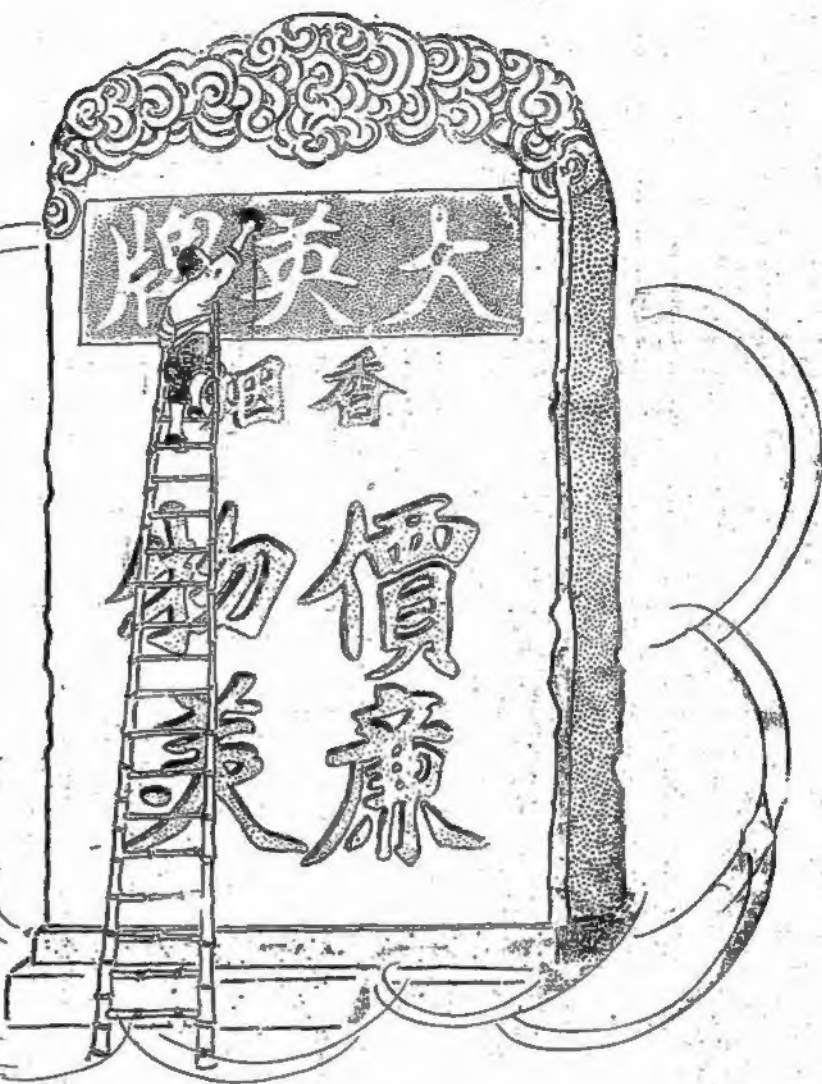 大英牌
香烟
價廉
物美